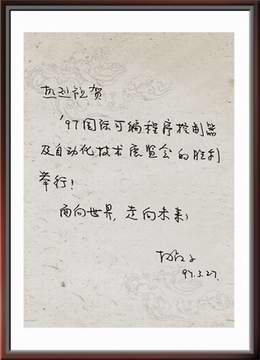 热烈祝贺
'97国际可编程序控制器
及自动化技术展览会的胜利
举行!
面向世界,走向未来!
97.3.27.